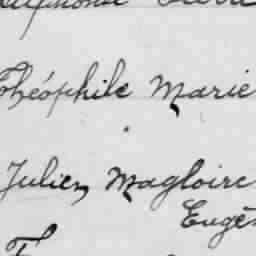 Théophile Marie
Julien Magloire
Eugè